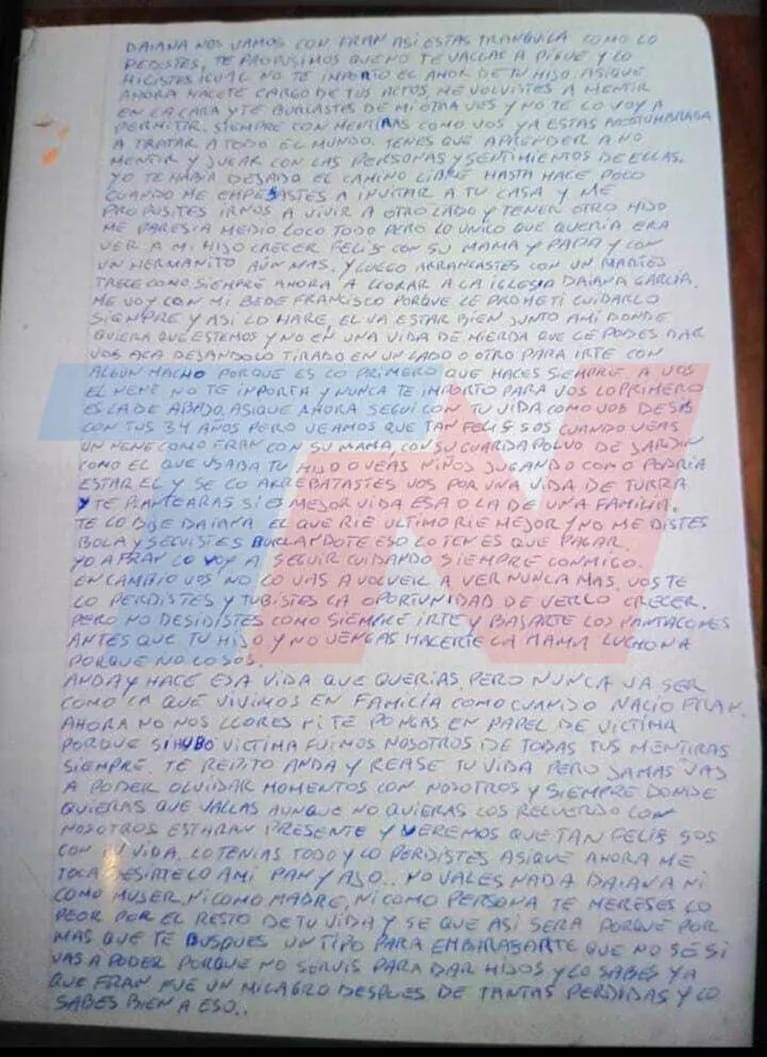 DAIANA NOS VAMOS CON FRAN ASI ESTAS TRANQUILA COMO LO
PEDISTES, TE PROPUSIMOS QUE NO TE VALLAS A PIGUE Y LO
HICISTES IGUAL NO TE INPORTO EL AMOR DE TU HIJO. ASIQUE
AHORA HACETE CARGO DE TUS ACTOS. ME VOLVISTES A MENTIR
EN LA CARA Y TE BURLASTES DE MI OTRA VES Y NO TE LO VOY A
PERMITIR. SIEMPRE CON MENTIRAS COMO VOS YA ESTAS ACOSTUMBRADA
A TRATAR A TODO EL MUNDO. TENES QUE APRENDER A NO
MENTIR Y JUGAR CON LAS PERSONAS Y SENTIMIENTOS DE ELLAS.
YO TE HABIA DEJADO EL CAMINO LIBRE HASTA HACE POCO
CUANDO ME EMPESASTES A INVITAR A TU CASA Y ME
PROPUSITES IRNOS A VIVIR A OTRO LADO Y TENER OTRO HIJO
ME PARESIA MEDIO LOCO TODO PERO LO UNICO QUE QUERIA ERA
VER A MI HIJO CRECER FELIS CON SU MAMA Y PAPA Y CON
UN HERMANITO AÚN MAS. Y LUEGO ARRANCASTES CON UN MARTES
TRECE COMO SIEMPRE AHORA A LLORAR A LA IGLESIA DAIANA GARCIA.
ME VOY CON MI BEBE FRANCISCO PORQUE LE PROMETI CUIDARLO
SIEMPRE Y ASI LO HARE, EL VA ESTAR BIEN JUNTO AMI DONDE
QUIERA QUE ESTEMOS Y NO EN UNA VIDA DE MIERDA QUE LE PODES DAR
VOS ACA DEJANDOLO TIRADO EN UN LADO O OTRO PARA IRTE CON
ALGUN MACHO PORQUE ES LO PRIMERO QUE HACES SIEMPRE. A VOS
EL NENE NO TE INPORTA Y NUNCA TE INPORTO PARA VOS LO PRIMERO
ES LA DE ABAJO. ASIQUE AHORA SEGUI CON TU VIDA COMO VOS DESIS
CON TUS 34 AÑOS PERO VEAMOS QUE TAN FELIS SOS CUANDO VEAS
UN NENE COMO FRAN CON SU MAMA, CON SU GUARDAPOLVO DE JARDIN
COMO EL QUE USABA TU HIJO O VEAS NIÑOS JUGANDO COMO PODRIA
ESTAR EL Y SE LO ARREBATASTES VOS POR UNA VIDA DE TURRA
Y TE PLANTEARAS SI ES MEJOR VIDA ESA O LA DE UNA FAMILIA.
TE LO DIJE DAIANA EL QUE RIE ULTIMO RIE MEJOR Y NO ME DISTES
BOLA Y SEGUISTES BURLANDOTE ESO LO TENES QUE PAGAR.
YO A FRAN LO VOY A SEGUIR CUIDANDO SIEMPRE CONMIGO.
EN CAMBIO VOS NO LO VAS A VOLVER A VER NUNCA MAS. VOS TE
LO PERDISTES Y TUBISTES LA OPORTUNIDAD DE VERLO CRECER.
PERO NO DESIDISTES COMO SIEMPRE IRTE Y BAJARTE LOS PANTALONES
ANTES QUE TU HIJO Y NO VENGAS HACERTE LA MAMA LUCHONA
PORQUE NO LO SOS.
ANDA Y HACE ESA VIDA QUE QUERIAS. PERO NUNCA VA SER
COMO LA QUE VIVIMOS EN FAMILIA COMO CUANDO NACIO FRAN.
AHORA NO NOS LLORES NI TE PONGAS EN PAPEL DE VICTIMA
PORQUE SI HUBO VICTIMA FUIMOS NOSOTROS DE TODAS TUS MENTIRAS
SIEMPRE. TE REPITO ANDA Y REASE TU VIDA PERO JAMAS VAS
A PODER OLVIDAR MOMENTOS CON NOSOTROS Y SIEMPRE DONDE
QUIERAS QUE VALLAS AUNQUE NO QUIERAS LOS RECUERDO CON
NOSOTROS ESTARAN PRESENTE Y VEREMOS QUE TAN FELIS SOS
CON TU VIDA. LO TENIAS TODO Y LO PERDISTES ASIQUE AHORA ME
TOCA DESIRTELO AMI PAN Y AJO.. NO VALES NADA DAIANA NI
COMO MUJER, NI COMO MADRE, NI COMO PERSONA TE MERESES LO
PEOR POR EL RESTO DE TU VIDA Y SE QUE ASI SERA PORQUE POR
MAS QUE TE BUSQUES UN TIPO PARA EMBARASARTE QUE NO SE SI
VAS A PODER PORQUE NO SERVIS PARA DAR HIJOS Y LO SABES YA
QUE FRAN FUE UN MILAGRO DESPUES DE TANTAS PERDIDAS Y LO
SABES BIEN A ESO..
TN